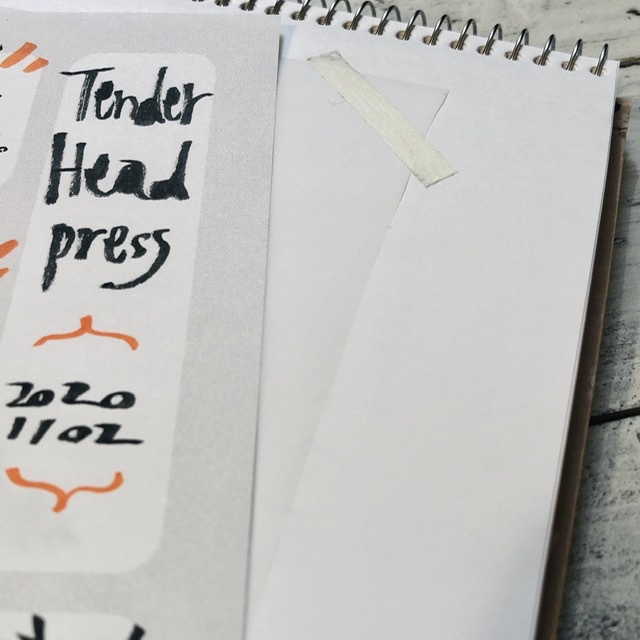 Tender
Head
press
2020
1102